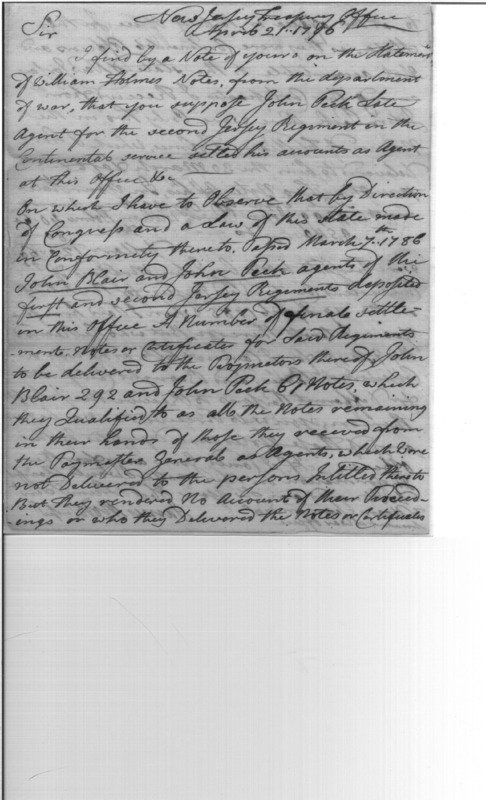 New Jersey Treasury Office
Sir April 21. 1796
I find by a Note of yours on the Statement
of William Holmes Notes, from the department
of war, that you suppose John Peck late
Agent for the second Jersey Regiment in the
Continental service setled his accounts as Agent
at this Office &c
On which I have to Observe that by Direction
of Congress and a Law of this State made
in Conformity thereto. Passed March 7th 1786
John Blair and John Peck agents of the
first and second Jersey Regiments deposited
in this Office A Number of final settle-
-ment Notes or Certificates for said Regiments
to be delivered to the Paymasters thereof, John
Blair 292 and John Peck 61 Notes, which
they Qualified to as all the Notes remaining
in their hands of those they received from
the Paymaster General as Agents, which were
not Delivered to the persons Intitled thereto
But they rendered No Account of their Proceed-
ings or who they Delivered the Notes or Certificates